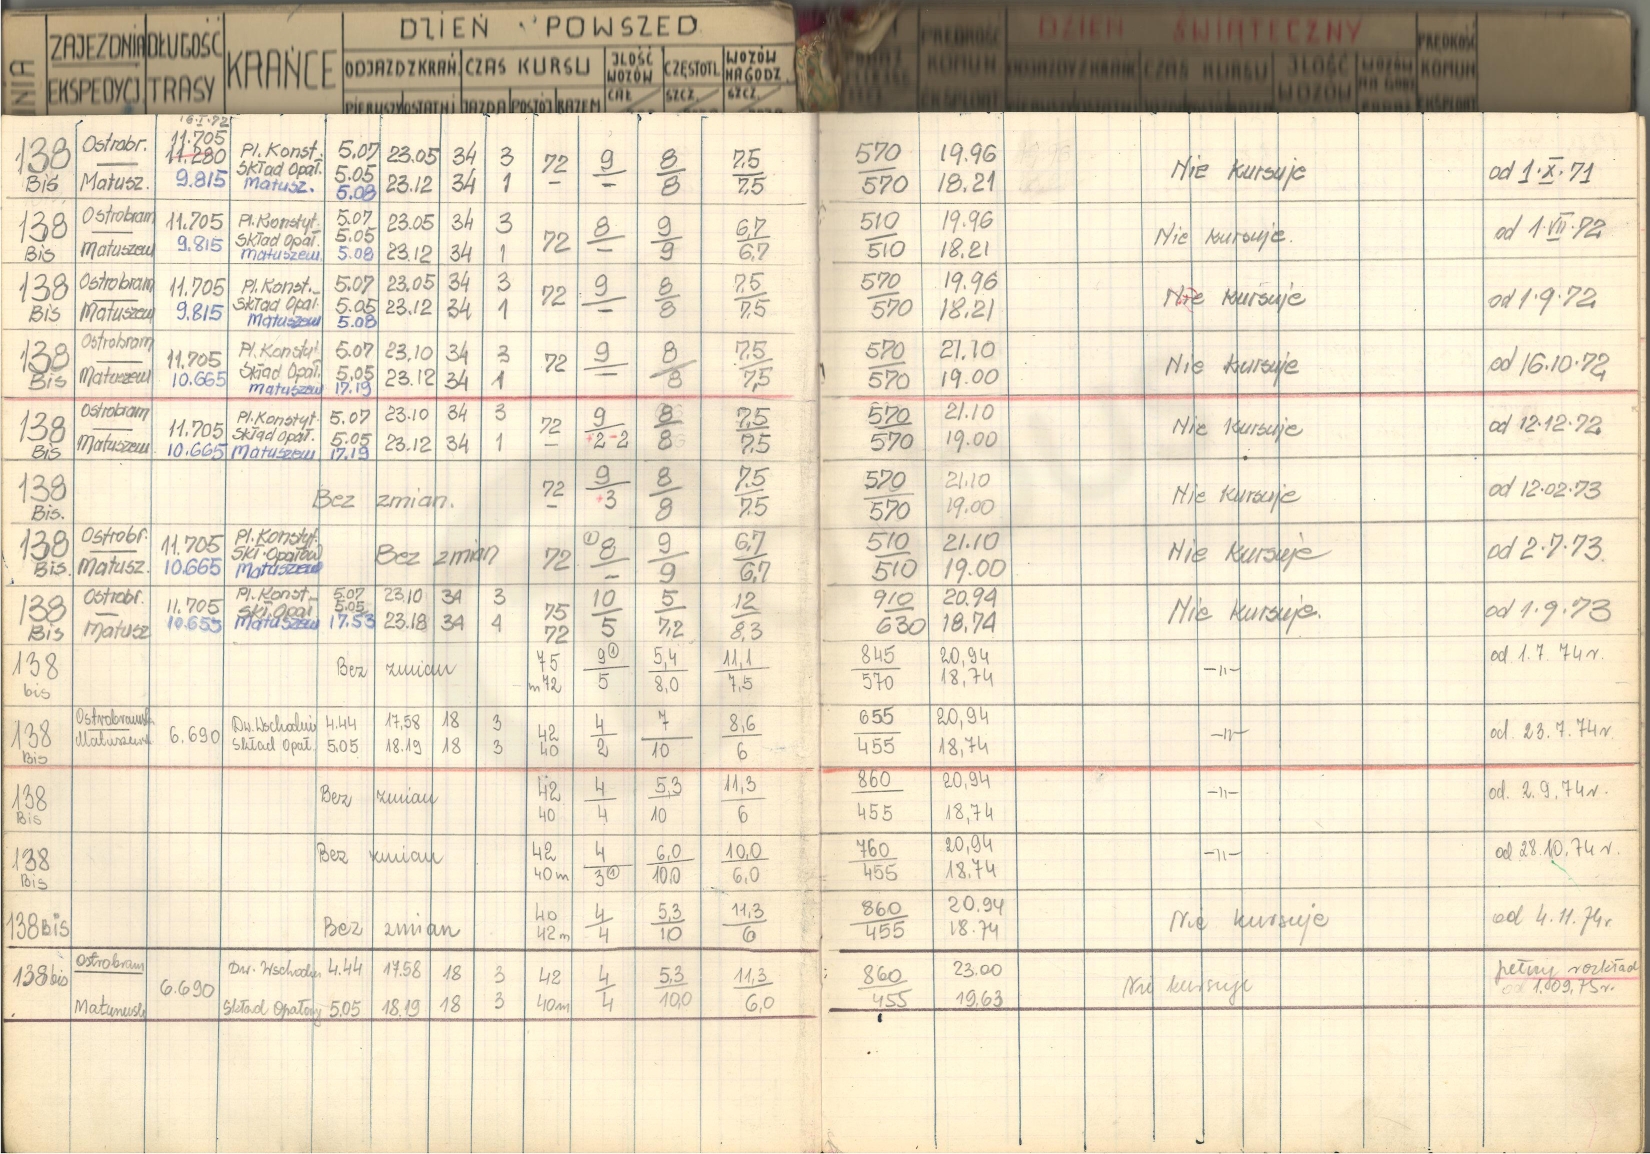 DZIEŃ POWSZED
DZIEŃ ŚWIĄTECZNY
ZAJEZDNIA DŁUGOŚĆ KRAŃCE ODJAZD Z KRAŃ. CZAS KURSU JLOŚĆ WOZÓW CZĘSTOTL. WOZÓW NA GODZ.
EKSPEDYCJ. TRASY PIERWSZY OSTATNI JAZDA POSTÓJ RAZEM CAŁ SZCZ. SZCZ.
PRĘDKOŚĆ KOMUN EKSPLOAT ODJAZDY Z KRAŃC CZAS KURSU JLOŚĆ WOZÓW PRĘDKOŚĆ KOMUN EKSPLOAT
16.I.72
138 Bis Ostrobr. 11.705 11.280 Pl. Konst. 5.07 23.05 34 3 72 9 8 7,5 570 19.96 Nie kursuje od 1.X.71
Skład Opał. 5.05
Matusz. 9.815 Matusz. 5.08 23.12 34 1 – – 8 7,5 570 18.21
138 Bis Ostrobram 11.705 Pl. Konstyt. 5.07 23.05 34 3 72 8 9 6,7 510 19.96 Nie kursuje. od 1.VII.72
Skład Opał. 5.05
Matuszew 9.815 Matuszew. 5.08 23.12 34 1 – 9 6,7 510 18.21
138 Bis Ostrobram 11.705 Pl. Konst. 5.07 23.05 34 3 72 9 8 7,5 570 19.96 Nie kursuje od 1.9.72
Skład Opał. 5.05 23.12 34 1
Matuszew 9.815 Matuszew 5.08 – 8 7,5 570 18.21
138 Bis Ostrobram 11.705 Pl. Konstyt 5.07 23.10 34 3 72 9 8 7,5 570 21.10 Nie kursuje od 16.10.72
Skład Opał. 5,05 23.12 34 1
Matuszew 10.665 Matuszew 17.19 – 8 7,5 570 19.00
138 Bis Ostrobram 11.705 Pl. Konstyt 5.07 23.10 34 3 72 9 8 7,5 570 21.10 Nie kursuje od 12.12.72
Skład Opał. 5.05 23.12 34 1
Matuszew 10.665 Matuszew 17.19 – +2 -2 8 7,5 570 19.00
138 Bis. Bez zmian. 72 9 8 7.5 570 21.10 Nie kursuje od 12.02.73
– +3 8 7.5 570 19.00
138 Bis. Ostrobr. 11.705 Pl. Konstyt. Bez zmian 72 1) 8 9 6,7 510 21.10 Nie kursuje od 2.7.73.
Skł. Opałow
Matusz. 10.665 Matuszew – 9 6,7 510 19.00
138 Bis Ostrobr. 11.705 Pl. Konst. 5.07 23.10 34 3 75 10 5 12 910 20.94 Nie kursuje. od 1.9.73
Skł. Opał 5.05
Matusz 10.655 Matuszew 17.53 23.18 34 4 72 5 7,2 8,3 630 18,74
138 bis Bez zmian 75 9 1) 5,4 11,1 845 20,94 –"– od 1.7.74r.
m 72 5 8,0 7,5 570 18,74
138 Bis Ostrobramsk 6.690 Dw. Wschodni 4.44 17,58 18 3 42 4 7 8,6 655 20,94 –"– od. 23.7.74r
Matuszewsk Skład Opał. 5.05 18.19 18 3 40 2 10 6 455 18,74
138 Bis Bez zmian 42 4 5,3 11,3 860 20,94 –"– od. 2.9.74r.
40 4 10 6 455 18,74
138 Bis Bez zmian 42 4 6,0 10,0 760 20,94 –"– od 28.10.74r.
40 m 3 1) 10,0 6,0 455 18.74
138 Bis Bez zmian 40 4 5,3 11,3 860 20.94 Nie kursuje od 4.11.74r
42 m 4 10 6 455 18.74
138 bis Ostrobram 6.690 Dw. Wschodni 4.44 17.58 18 3 42 4 5,3 11,3 860 23.00 Nie kursuje pełny rozkład
Skład Opałowy 5.05 18.19 18 3 40m 4 10,0 6,0 455 19,63 od 1.09.75r.